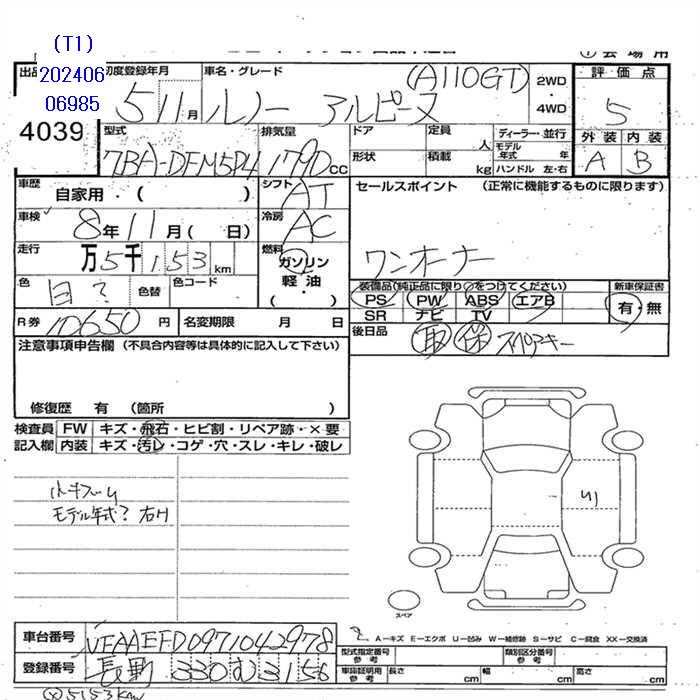 (T1)
202406
06985
4039
出品
初度登録年月
511月
車名・グレード
ルノー アルピーヌ (A110GT)
2WD
・
4WD
評価点
5
外装 内装
A B
型式
7BA-DFM5P4
排気量
1790cc
ドア
形状
定員
人
積載
kg
ディーラー・並行
モデル年式 年
ハンドル 左・右
車歴
自家用・( )
シフト
AT
セールスポイント (正常に機能するものに限ります)
ワンオーナー
車検
8年11月( 日)
冷房
AC
走行
万5千153km
燃料
ガソリン
軽油
( ・ )
色
白?
色替
色コード
装備品(純正品に限り○をつけてください)
新車保証書
PS PW ABS エアB
有・無
SR ナビ TV
R券
10650円
名変期限 月 日
後日品
取 保 スペアキー
注意事項申告欄 (不具合内容等は具体的に記入して下さい)
修復歴 有 (箇所 )
検査員
記入欄
FW キズ・飛石・ヒビ割・リペア跡・×要
内装 キズ・汚レ・コゲ・穴・スレ・キレ・破レ
モデル年式? 右H
U1
スペア
A-キズ E-エクボ U-凹み W-補修跡 S-サビ C-腐食 XX-交換済
車台番号
VFAAEFD0971042978
登録番号
330む3156
型式指定番号
参考
類別区分番号
参考
車両証明用
参考
長さ cm 幅 cm 高さ cm
5153km